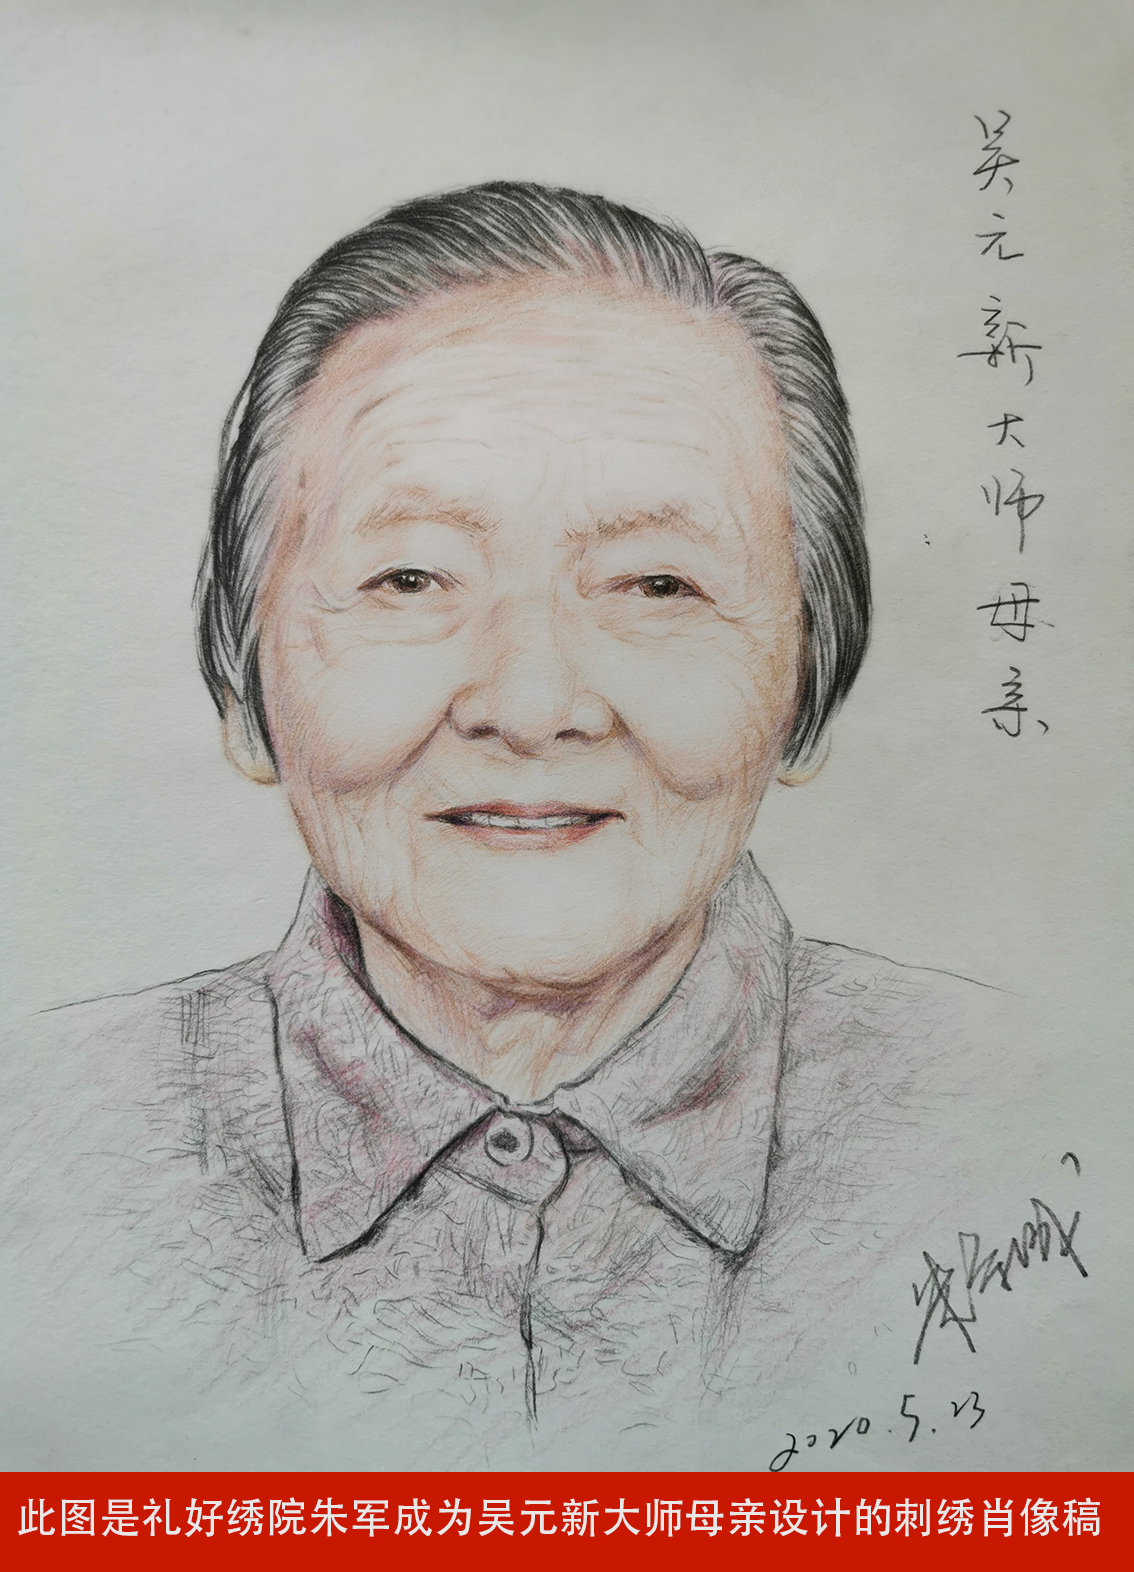 吴元新大师母亲
朱军成
2020.5.23
此图是礼好绣院朱军成为吴元新大师母亲设计的刺绣肖像稿